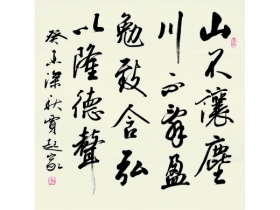 山不讓塵
川不辭盈
勉爾含弘
以隆德聲
癸未深秋賈起家